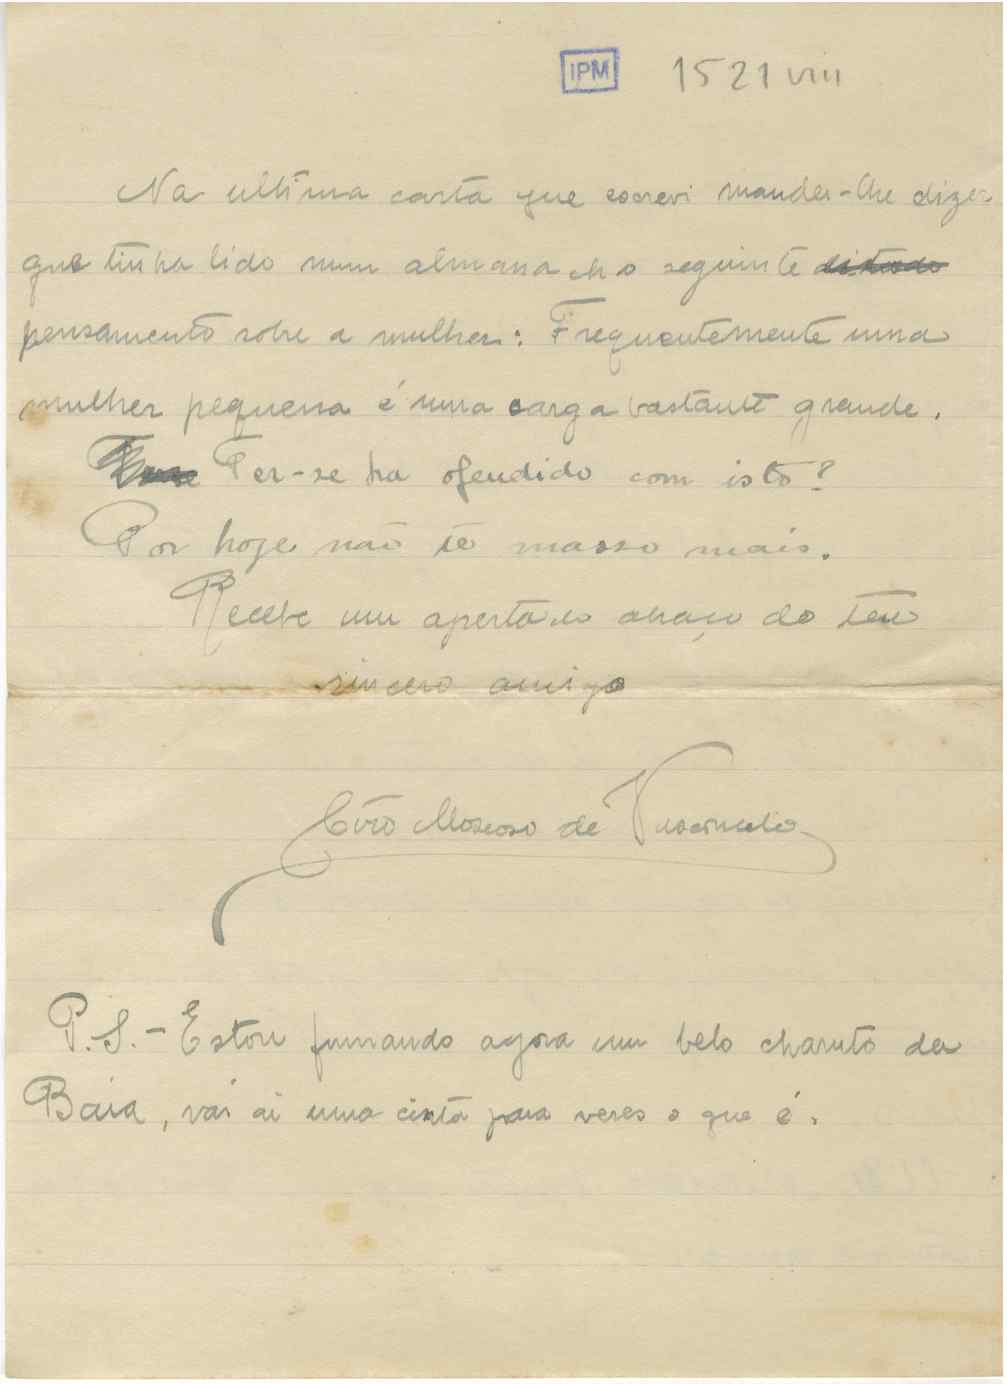 IPM 1521 VIII
Na ultima carta que escrevi mandei-lhe dizer
que tinha lido num almanach o seguinte ditado
pensamento sobre a mulher: Frequentemente uma
mulher pequena é uma carga bastante grande.
Ter-se ha ofendido com isto?
Por hoje não te masso mais.
Recebe um apertado abraço do teu
sincero amigo
Ciro Moscoso de Vasconcelos
P.S.- Estou fumando agora um belo charuto da
Baia, vai aí uma cinta para veres o que é.